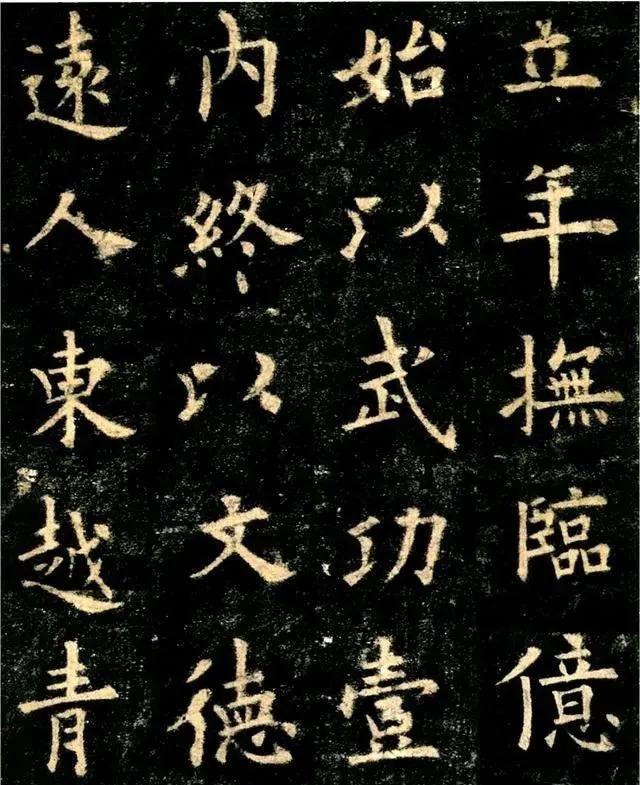 立年撫臨億
始以武功壹
內終以文德
遠人東越青